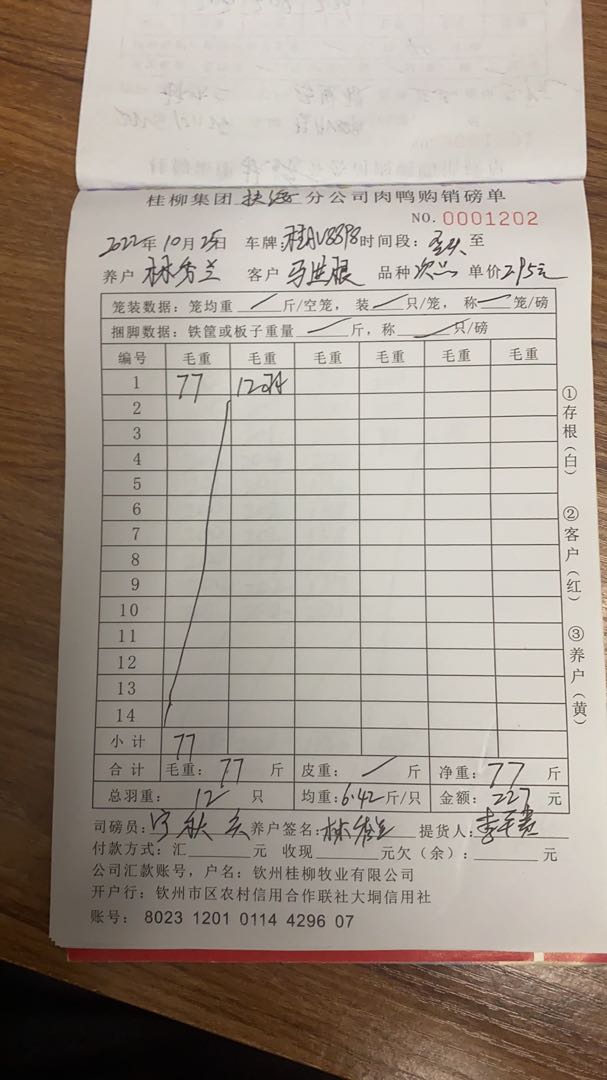 桂柳集团 扶绥 分公司肉鸭购销磅单
NO. 0001202
2022年10月25日 车牌:桂AV8898时间段: 至
养户 林秀兰 客户 马世银 品种 次品 单价2.95元
笼装数据: 笼均重 斤/空笼, 装 只/笼, 称 笼/磅
捆脚数据: 铁筐或板子重量 斤, 称 只/磅
编号 毛重 毛重 毛重 毛重 毛重 毛重
1 77 12只
2
3
4
5
6
7
8
9
10
11
12
13
14
小计 77
合计 毛重: 77 斤 皮重: 斤 净重: 77 斤
总羽重: 12 只 均重: 6.42斤/只 金额: 227 元
司磅员: 养户签名: 林秀兰 提货人:
付款方式: 汇 元 收现 元欠(余): 元
公司汇款账号, 户名: 钦州桂柳牧业有限公司
开户行: 钦州市区农村信用合作联社大垌信用社
账号: 8023 1201 0114 4296 07
①存根(白)
②客户(红)
③养户(黄)